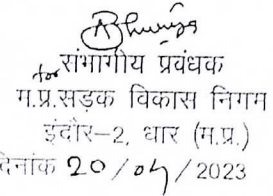 for संभागीय प्रबंधक
म.प्र.सड़क विकास निगम
इंदौर–2, धार (म.प्र.)
दिनांक 20/04/2023